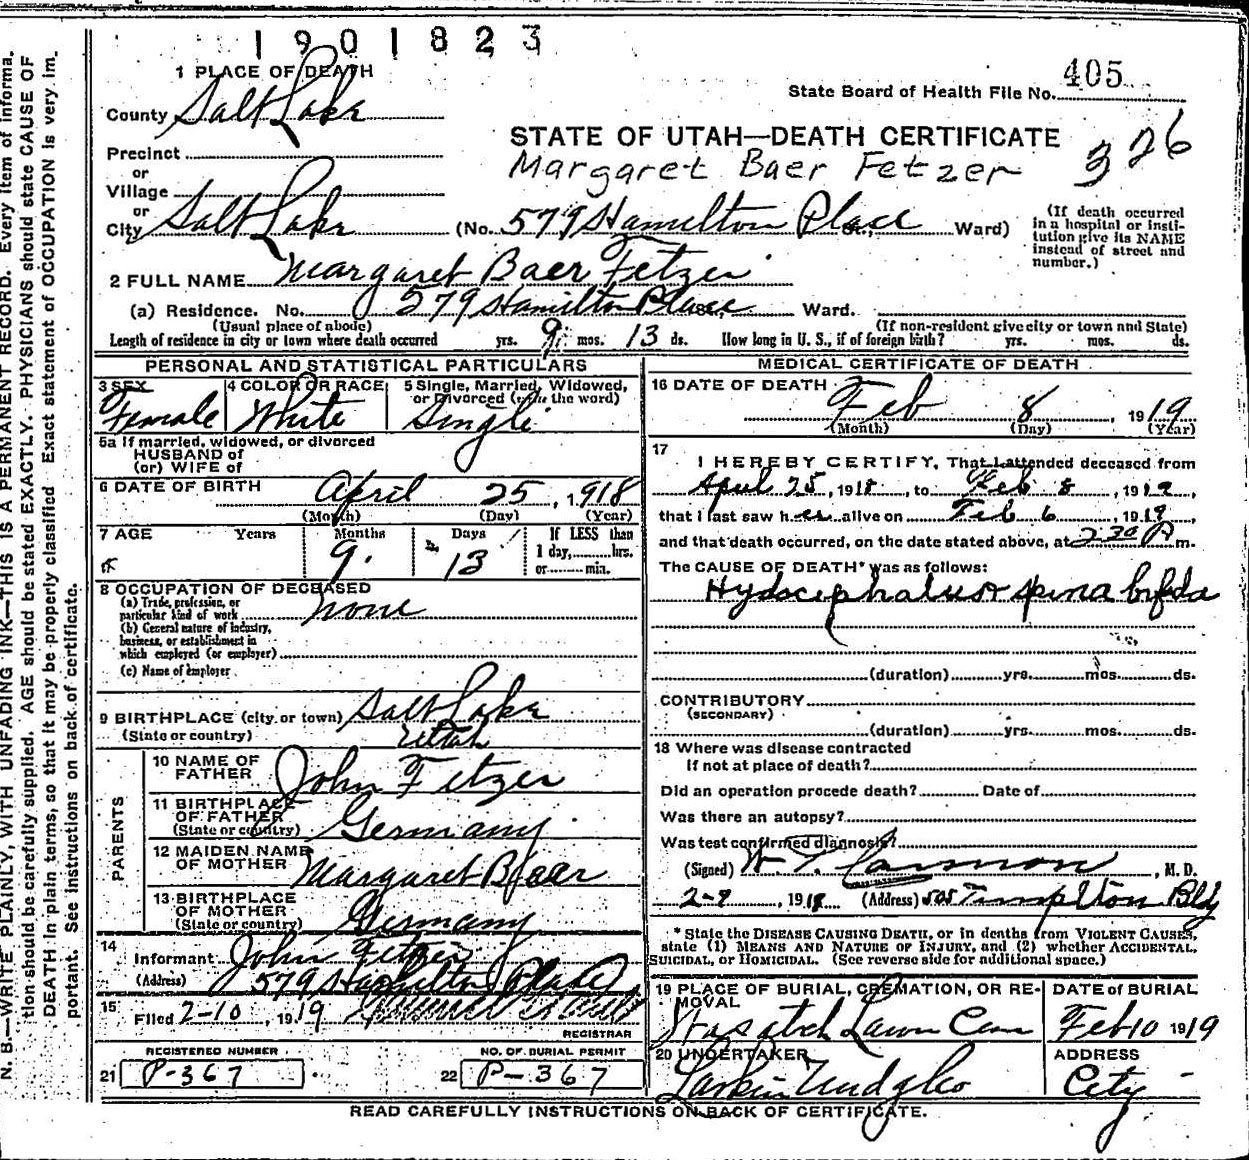 1901823
1 PLACE OF DEATH
405
State Board of Health File No.
County Salt Lake
STATE OF UTAH—DEATH CERTIFICATE
326
Precinct
Margaret Baer Fetzer
or
Village
or
City Salt Lake (No. 579 Hamilton Place Ward)
(If death occurred in a hospital or insti-
tution give its NAME instead of street and number.)
2 FULL NAME Margaret Baer Fetzer
(a) Residence. No. 579 Hamilton Place Ward.
(Usual place of abode) (If non-resident give city or town and State)
Length of residence in city or town where death occurred yrs. 9 mos. 13 ds. How long in U. S., if of foreign birth? yrs. mos. ds.
PERSONAL AND STATISTICAL PARTICULARS
3 SEX Female
4 COLOR OR RACE White
5 Single, Married, Widowed, or Divorced (write the word) Single
5a If married, widowed, or divorced
HUSBAND of
(or) WIFE of
6 DATE OF BIRTH April 25, 1918
(Month) (Day) (Year)
7 AGE Years Months Days If LESS than
9. 13 1 day, hrs.
or min.
8 OCCUPATION OF DECEASED
(a) Trade, profession, or
particular kind of work none
(b) General nature of industry,
business, or establishment in
which employed (or employer)
(c) Name of employer
9 BIRTHPLACE (city or town) Salt Lake
(State or country) Utah
PARENTS
10 NAME OF FATHER John Fetzer
11 BIRTHPLACE OF FATHER
(State or country) Germany
12 MAIDEN NAME OF MOTHER Margaret Baer
13 BIRTHPLACE OF MOTHER
(State or country) Germany
14 Informant John Fetzer
(Address) 579 Hamilton Place
15 Filed 2-10, 1919
REGISTRAR
REGISTERED NUMBER
21 P-367
NO. OF BURIAL PERMIT
22 P-367
MEDICAL CERTIFICATE OF DEATH
16 DATE OF DEATH
Feb 8 1919
(Month) (Day) (Year)
17 I HEREBY CERTIFY, That I attended deceased from
April 25, 1918, to Feb 8, 1919,
that I last saw her alive on Feb 6, 1919,
and that death occurred, on the date stated above, at 2 30 P m.
The CAUSE OF DEATH* was as follows:
Hydrocephalus spina bifida
(duration) yrs. mos. ds.
CONTRIBUTORY
(SECONDARY)
(duration) yrs. mos. ds.
18 Where was disease contracted
If not at place of death?
Did an operation procede death? Date of
Was there an autopsy?
Was test confirmed diagnosis?
(Signed) W. T. Cannon, M. D.
2-9, 1919 (Address) 505 Templton Bldg
* State the DISEASE CAUSING DEATH, or in deaths from VIOLENT CAUSES,
state (1) MEANS AND NATURE OF INJURY, and (2) whether ACCIDENTAL,
SUICIDAL, or HOMICIDAL. (See reverse side for additional space.)
19 PLACE OF BURIAL, CREMATION, OR RE-
MOVAL
Wasatch Lawn Cem
DATE of BURIAL
Feb 10 1919
20 UNDERTAKER
Larkin Undg Co
ADDRESS
City
READ CAREFULLY INSTRUCTIONS ON BACK OF CERTIFICATE.
N. B.—WRITE PLAINLY, WITH UNFADING INK—THIS IS A PERMANENT RECORD. Every item of informa-
tion should be carefully supplied. AGE should be stated EXACTLY. PHYSICIANS should state CAUSE OF
DEATH in plain terms, so that it may be properly classified. Exact statement of OCCUPATION is very im-
portant. See instructions on back of certificate.